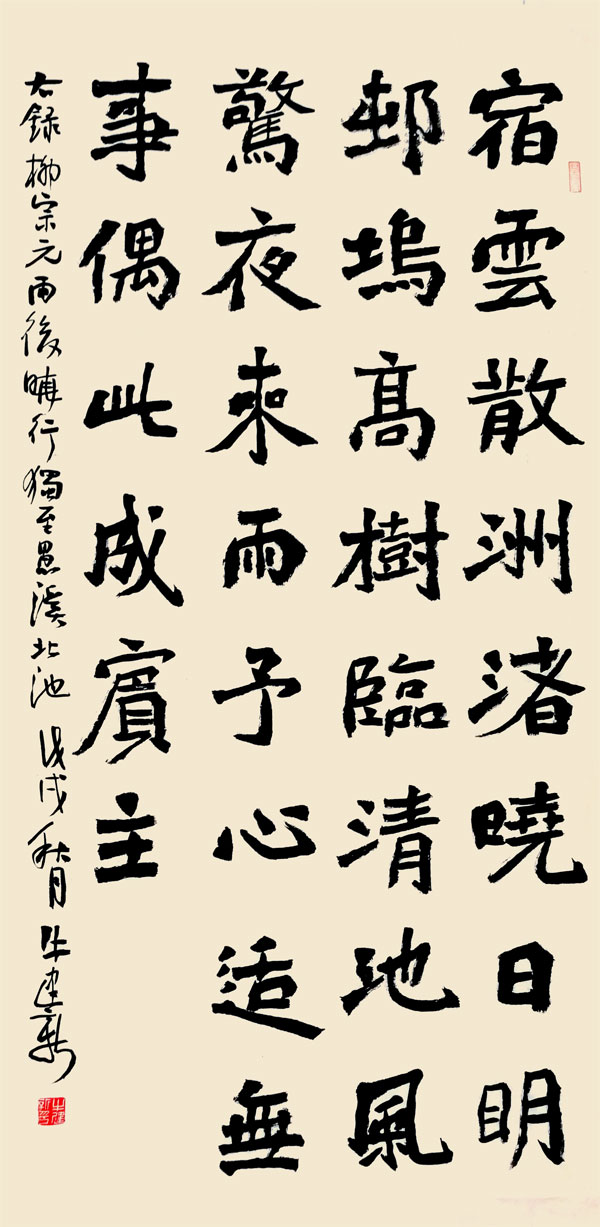 宿雲散洲渚曉日明
邨塢高樹臨清池風
驚夜來雨予心適無
事偶此成賓主
右録柳宗元雨後曉行獨至愚溪北池 戊戌秋月 牛建新